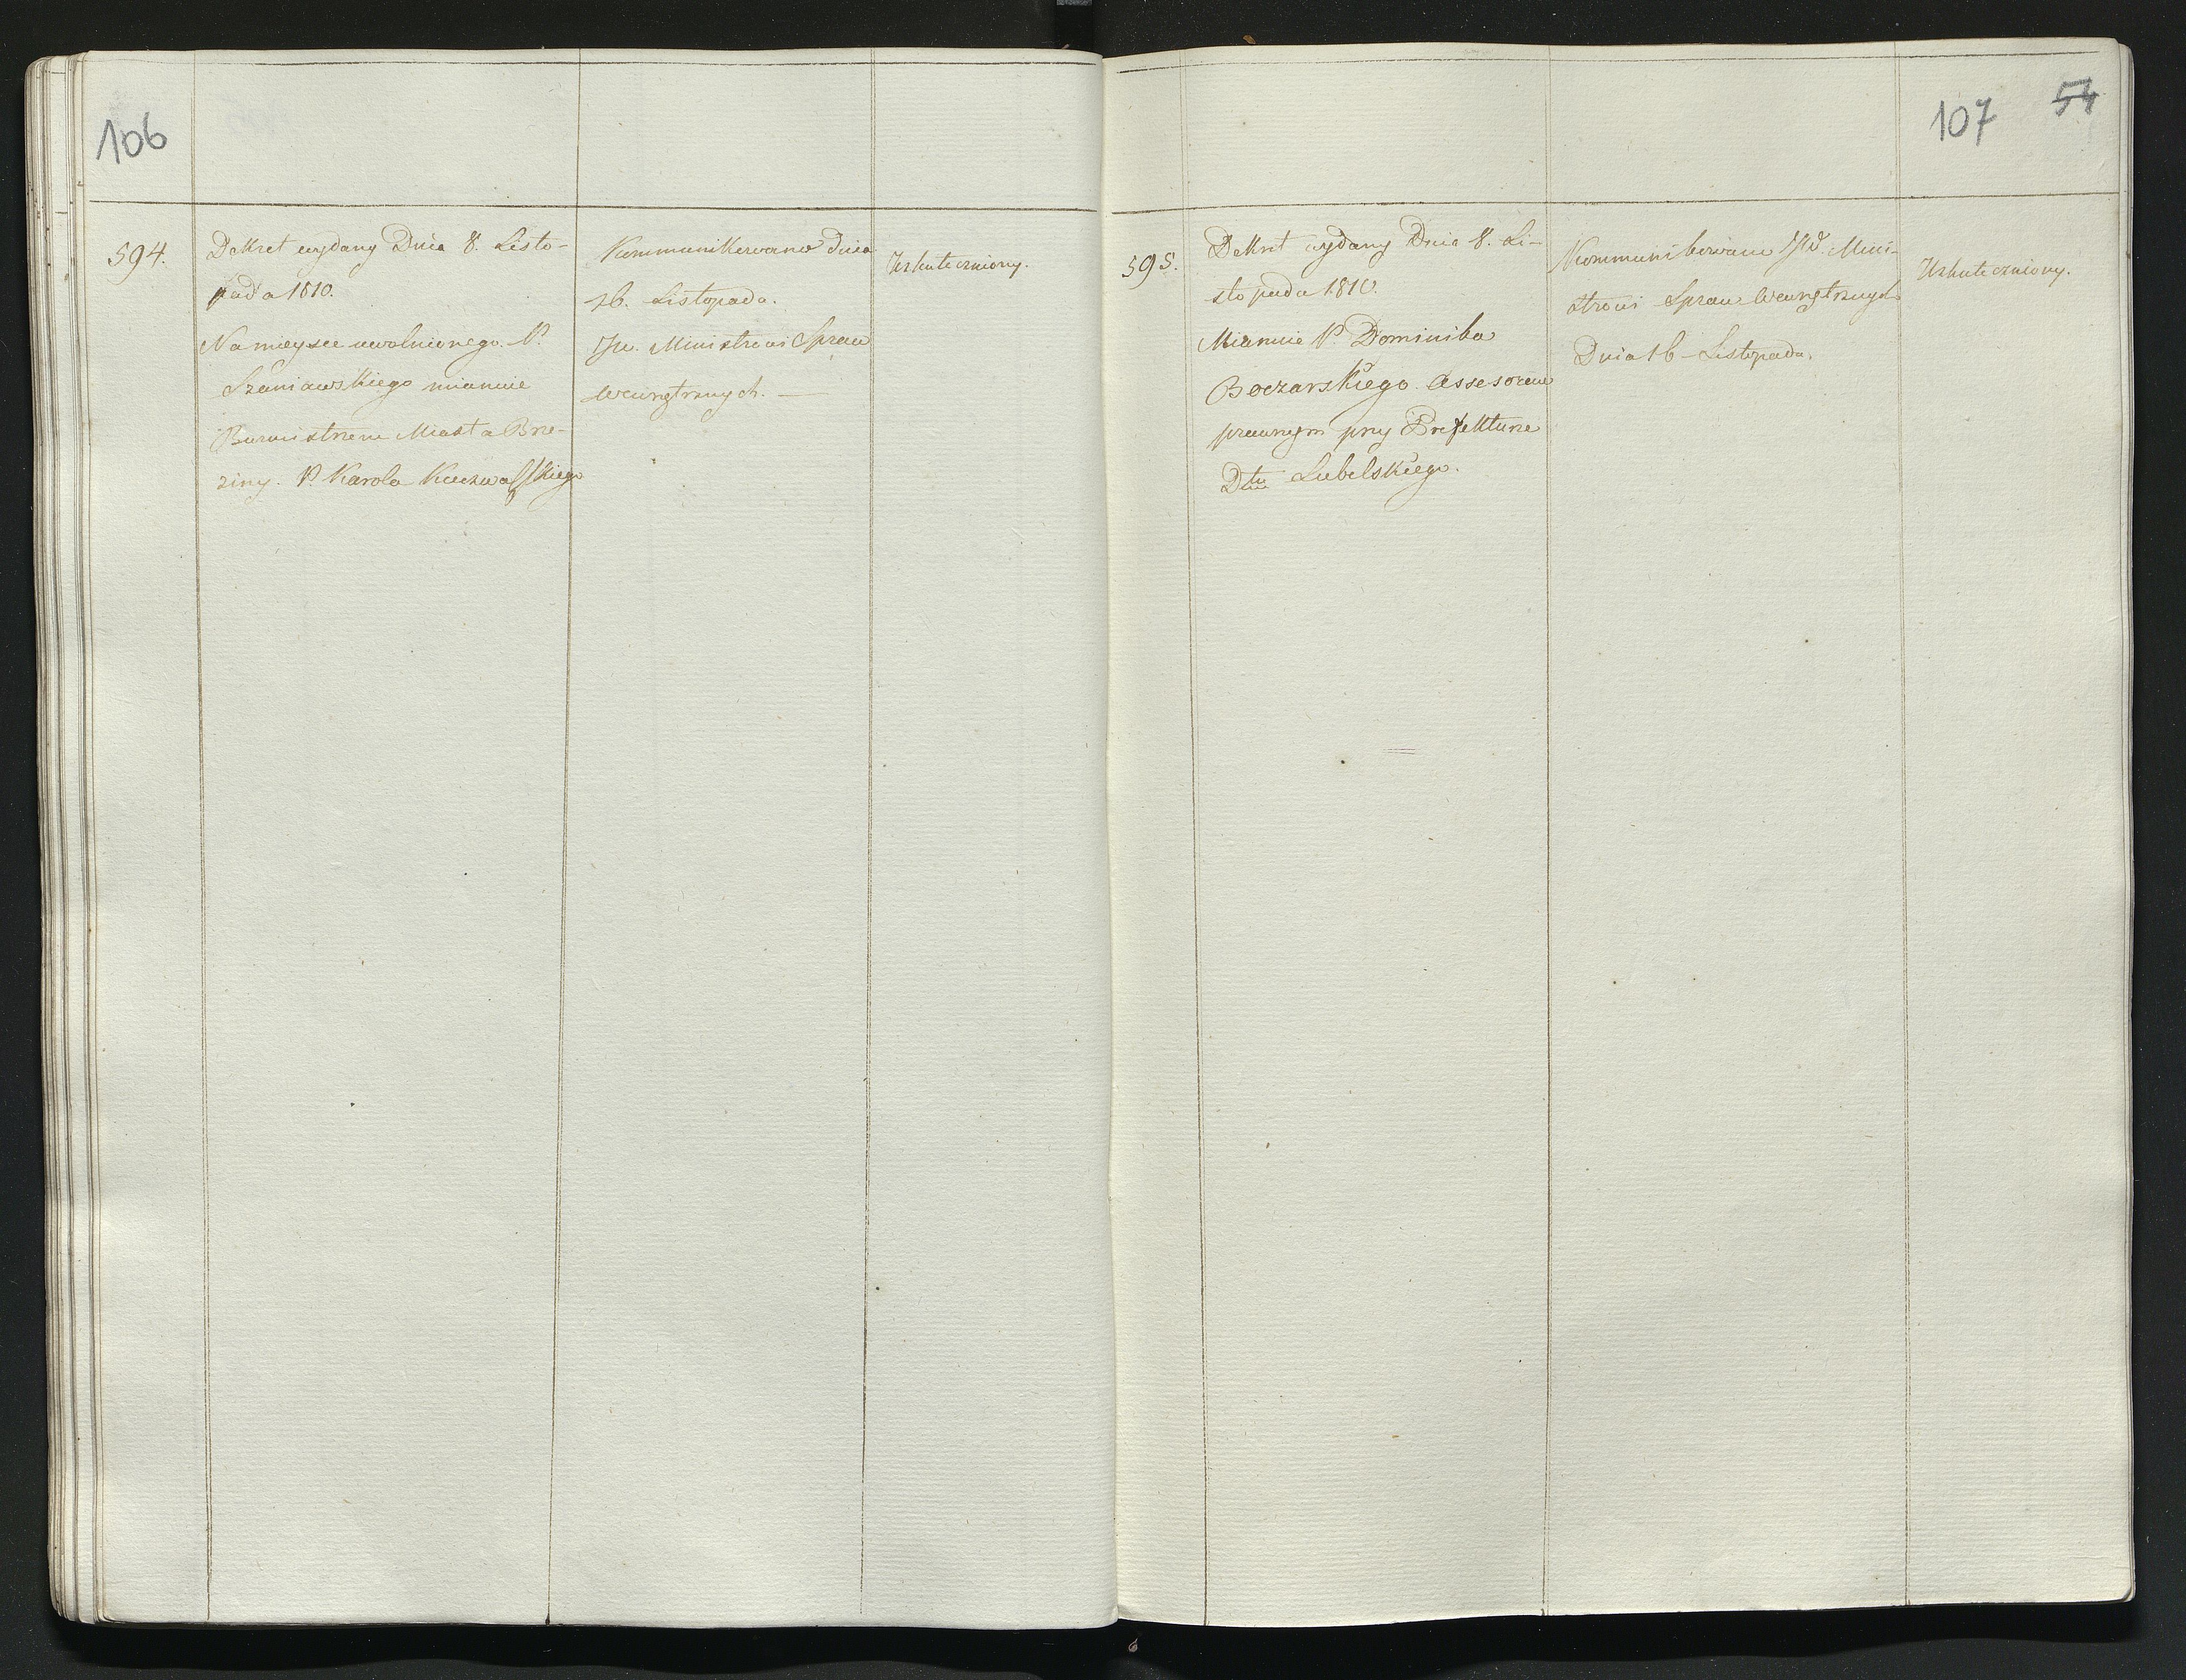 106
594.
Dekret wydany Dnia 8. Listo-
pada 1810.
Na mieysce uwolnionego P.
Szaniawskiego mianuie
Burmistrzem Miasta Brze-
ziny. P. Karola
Kommunikowano Dnia
16. Listopada.
JW. Ministrowi Spraw
Wewnętrznych. —
Uskuteczniony.
107 54
595.
Dekret wydany Dnia 8. Li-
stopada 1810.
Mianuie P. Dominika
Boczarskiego Assesorem
prawnym przy Prefekturze
Dttu Lubelskiego.
Kommunikowano JW. Mini-
strowi Spraw Wewnętrznych
Dnia 16 - Listopada.
Uskuteczniony.